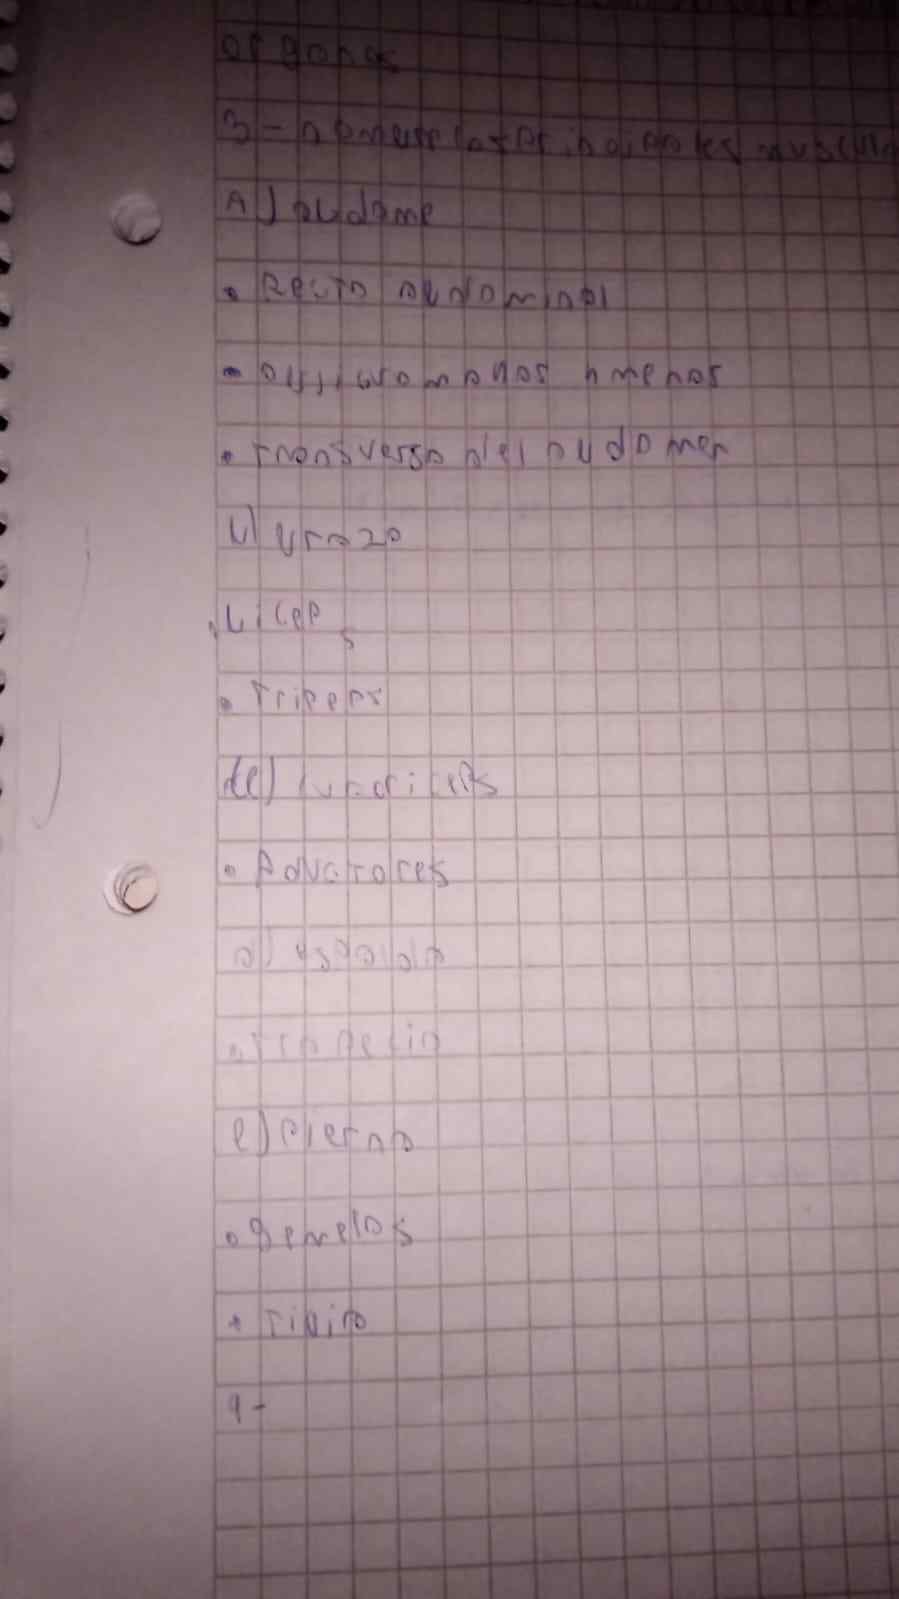 organos
3- nomure los principales muscul
A) audome
• Recto audominal
• oulicuo mayos y menos
• Transverso del audomen
u) urazo
• uiceps
• Triceps
c) cuadriceps
• Aductores
d) espalda
• Trapecio
e) pierna
• gemelos
• Tiuio
4-